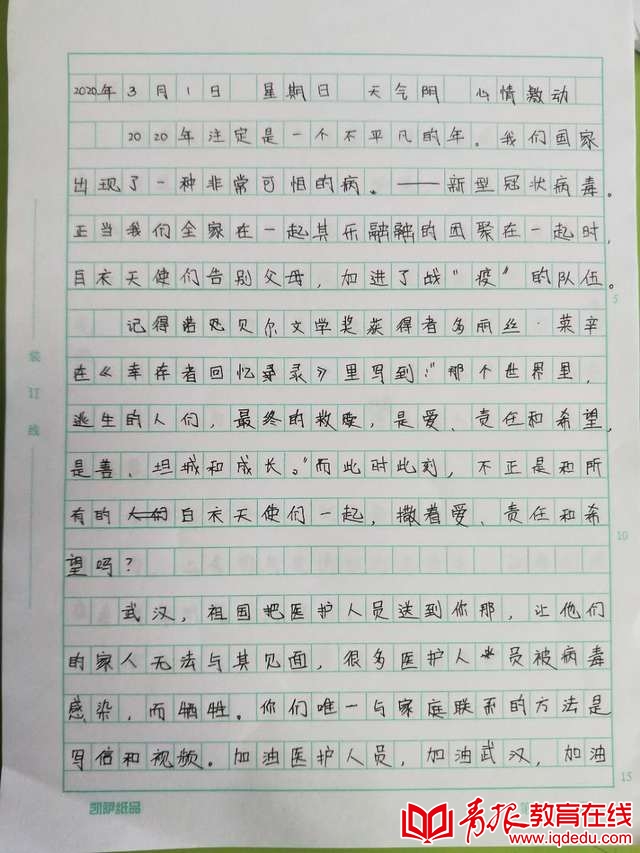 2020年3月1日 星期日 天气阴 心情激动
2020年注定是一个不平凡的年。我们国家
出现了一种非常可怕的病。——新型冠状病毒。
正当我们全家在一起其乐融融的团聚在一起时，
白衣天使们告别父母，加进了战“疫”的队伍。
记得诺贝尔文学奖获得者多丽丝·莱辛
在《幸存者回忆录》里写到：“那个世界里，
逃生的人们，最终的救赎，是爱、责任和希望，
是善、坦诚和成长。”而此时此刻，不正是和所
有的白衣天使们一起，撒着爱、责任和希
望吗？
武汉，祖国把医护人员送到你那，让他们
的家人无法与其见面，很多医护人员被病毒
感染，而牺牲。你们唯一与家庭联系的方法是
写信和视频。加油医护人员，加油武汉，加油
装订线
5
10
15
凯萨纸品
第
青报教育在线
www.iqdedu.com